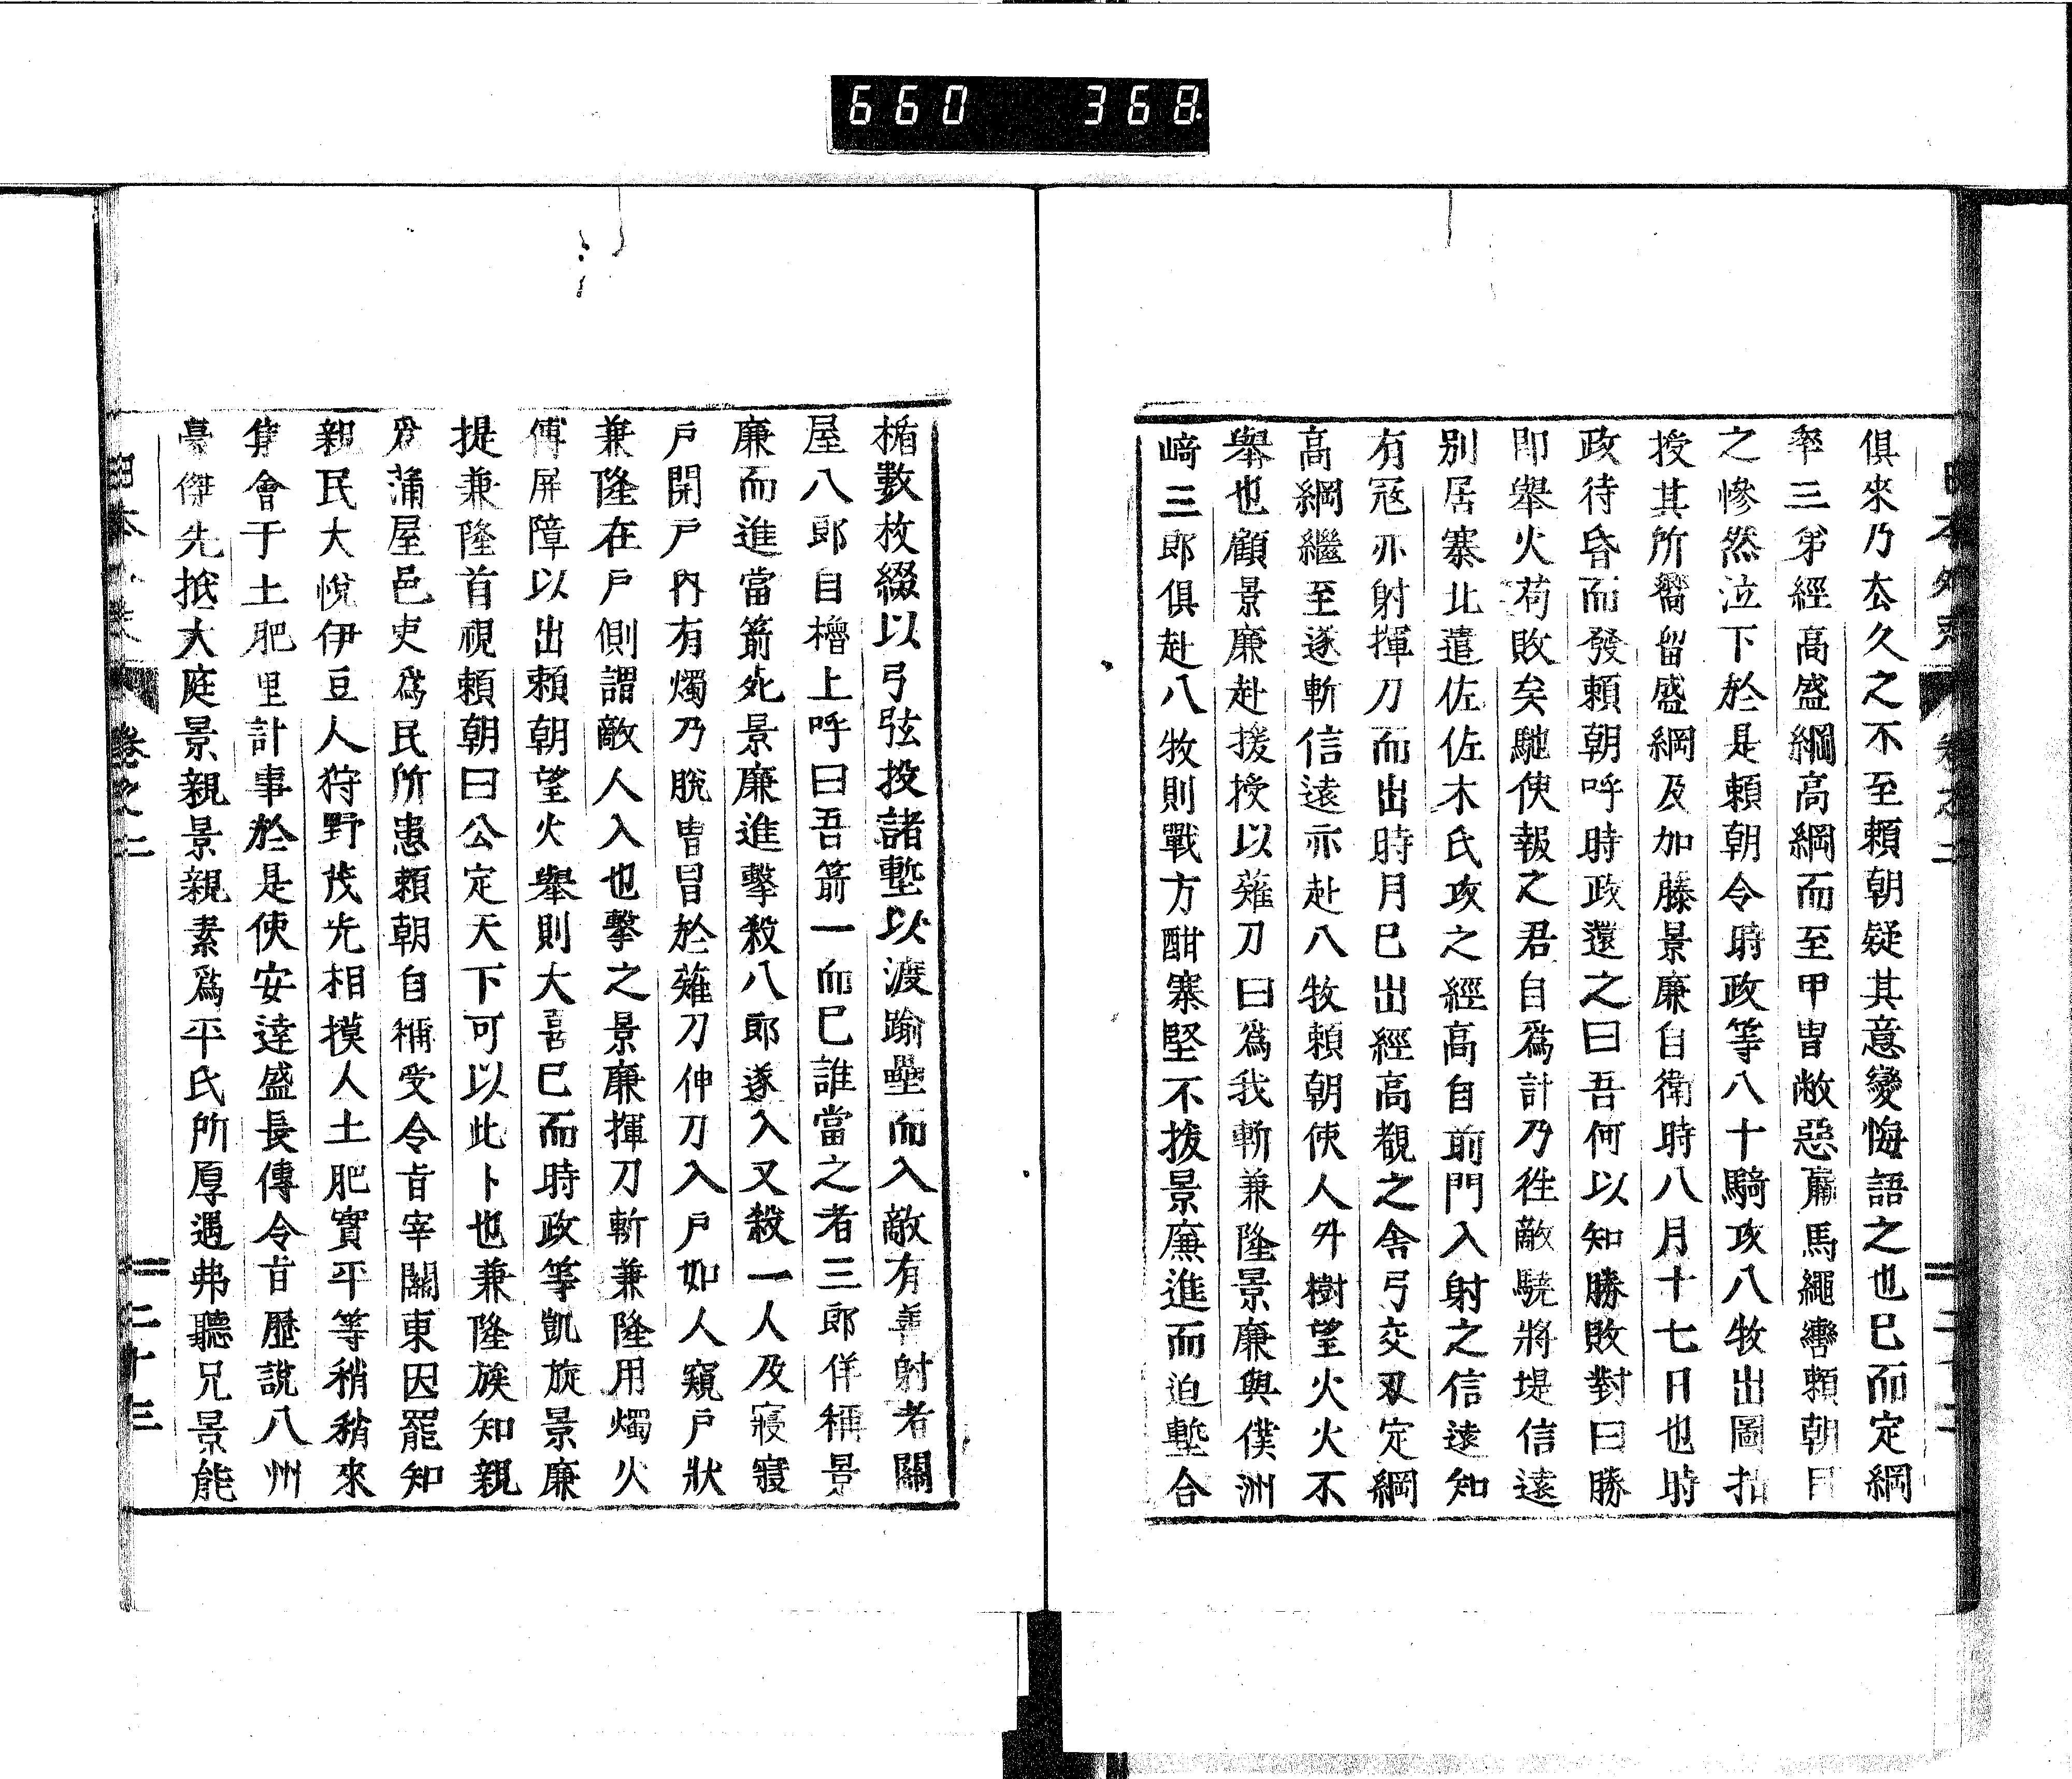 660 368
俱來乃去久之不至賴朝疑其意變悔語之也已而定綱
率三弟經高盛綱高綱而至甲冑敝惡羸馬繩轡賴朝目
之慘然泣下於是賴朝令時政等八十騎攻八牧出圖指
授其所嚮留盛綱及加藤景廉自衛時八月十七日也時
政待昏而發賴朝呼時政還之曰吾何以知勝敗對曰勝
即舉火苟敗矣馳使報之君自爲計乃徃敵驍將堤信遠
別居寨北遣佐佐木氏攻之經高自前門入射之信遠知
有冦亦射揮刀而出時月已出經高覩之舍弓交刃定綱
高綱繼至遂斬信遠亦赴八牧賴朝使人升樹望火火不
舉也顧景廉赴援授以薙刀曰爲我斬兼隆景廉與僕洲
﨑三郎俱赴八牧則戰方酣寨堅不拔景廉進而迫塹合
楯數枚綴以弓弦投諸塹以渡踰壘而入敵有善射者關
屋八郎自櫓上呼曰吾箭一而已誰當之者三郎佯稱景
廉而進當箭死景廉進擊殺八郎遂入又殺一人及寢寢
戶開戶內有燭乃脫冑冒於薙刀伸刀入戶如人窺戶狀
兼隆在戶側謂敵人入也擊之景廉揮刀斬兼隆用燭火
傅屏障以出賴朝望火舉則大喜已而時政等凱旋景廉
提兼隆首視賴朝曰公定天下可以此卜也兼隆族知親
爲蒲屋邑吏爲民所患賴朝自稱受令旨宰關東因罷知
親民大悅伊豆人狩野茂光相摸人土肥實平等稍稍來
集會于土肥里計事於是使安達盛長傳令旨歷說八州
豪傑先抵大庭景親景親素爲平氏所厚遇弗聽兄景能
日本外史 卷之二 二十三